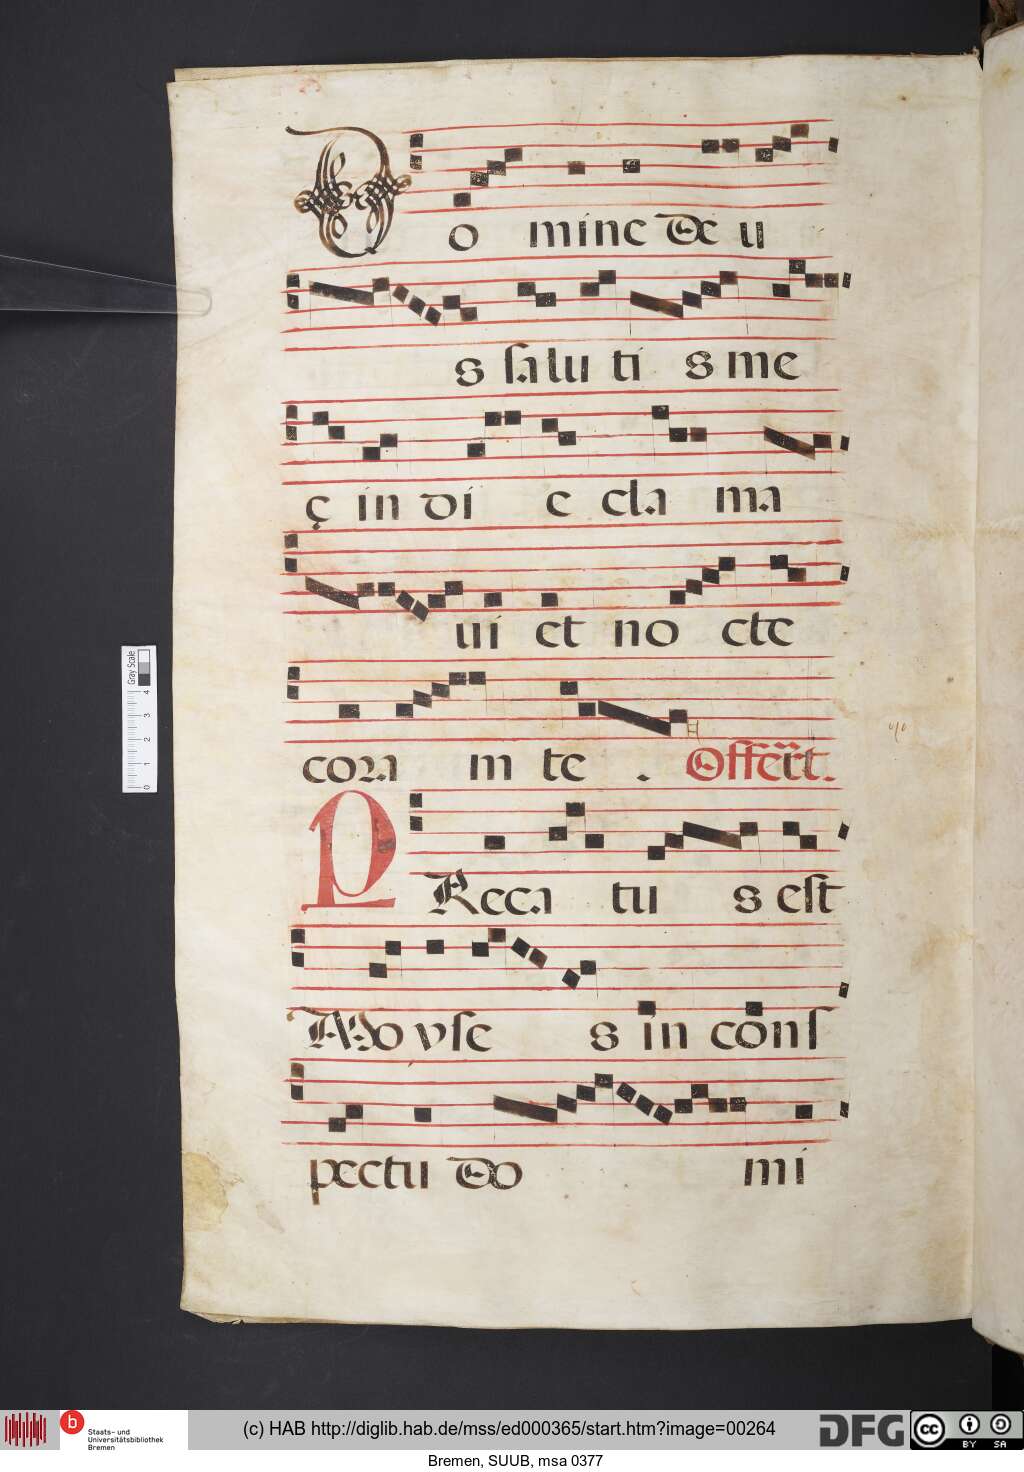 Do mine De u
s salu ti s me
ç in di e cla ma
ui et no cte
cora m te . Offert.
PReca tu s est
Moyse s in cons
pectu Do mi
Gray Scale
4 3 2 1 0
b
Staats- und
Universitätsbibliothek
Bremen
(c) HAB http://diglib.hab.de/mss/ed000365/start.htm?image=00264
DFG
cc BY SA
Bremen, SUUB, msa 0377